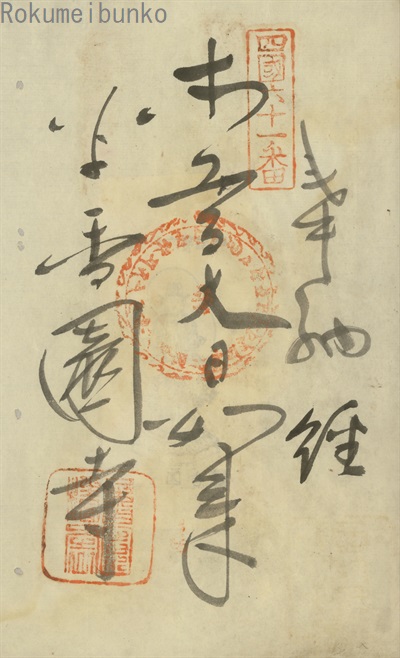 Rokumeibunko
四國六十一番
奉納
經
本尊大日如来
香園寺